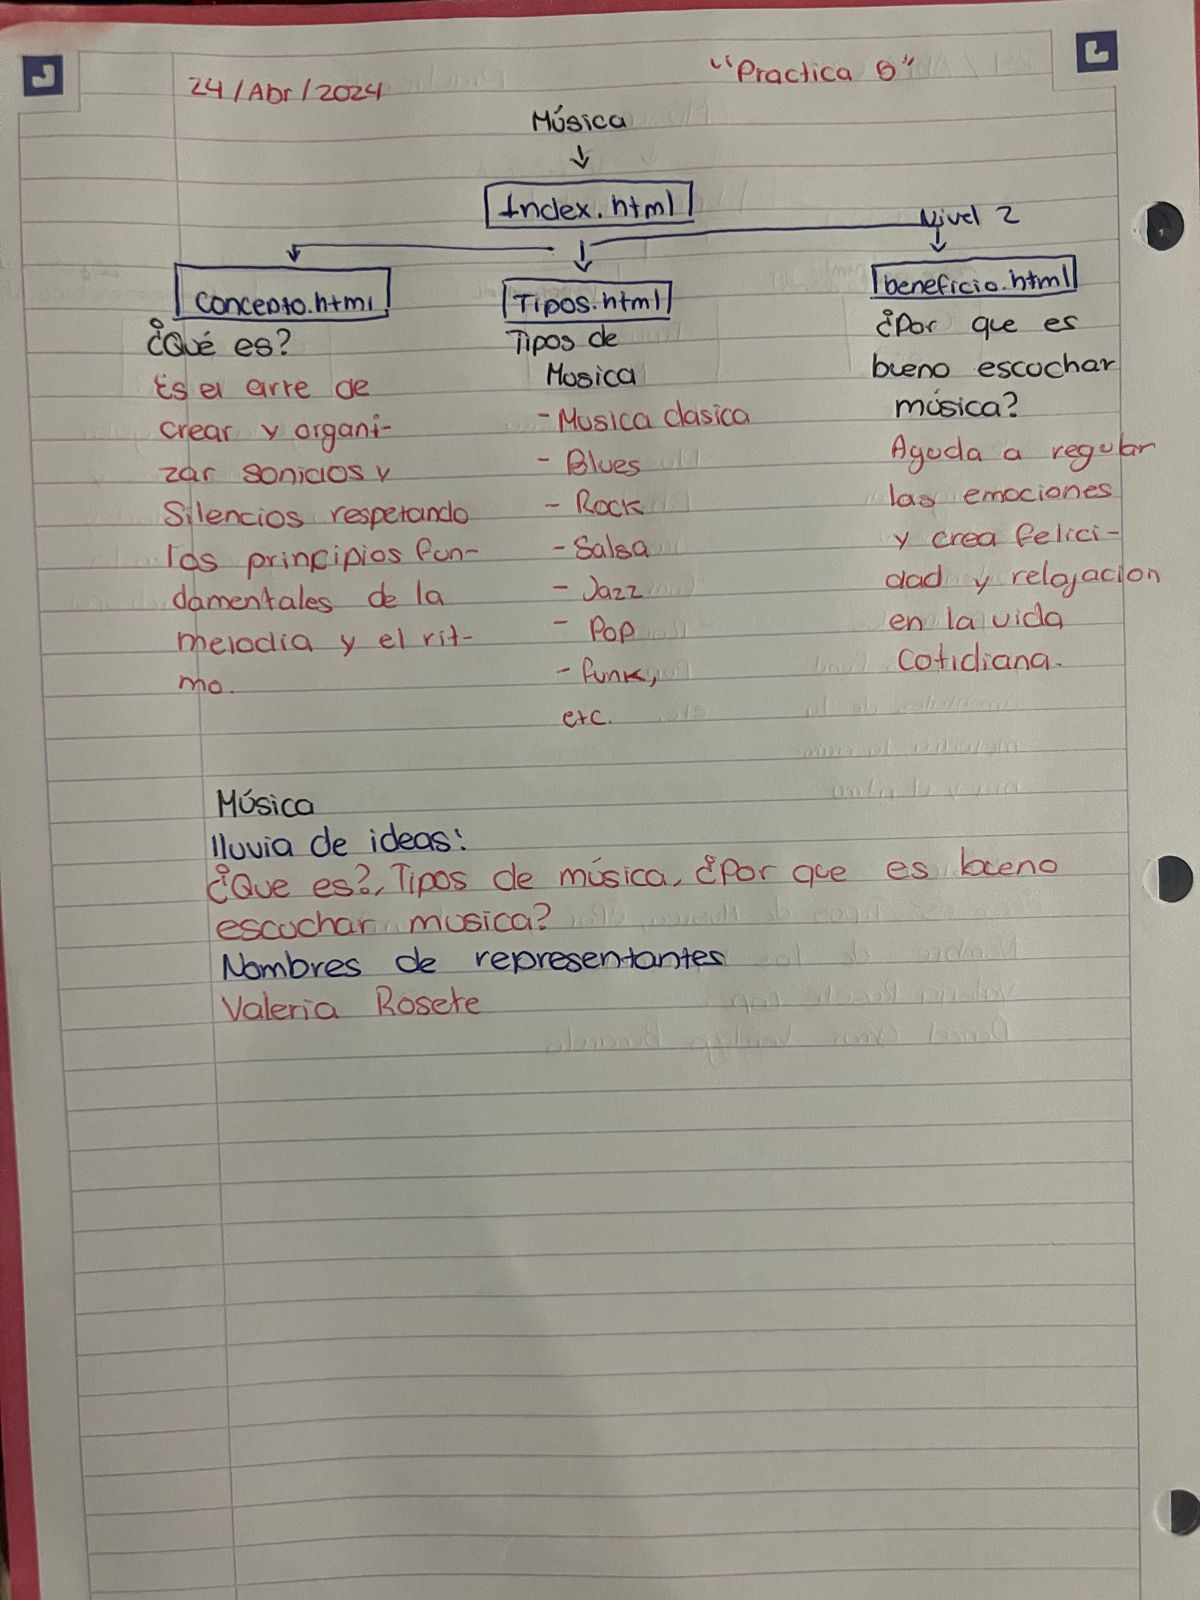 24/Abr/2024
"Practica 5"
Música
Index.html
Nivel 2
Concepto.html
¿Qué es?
Es el arte de
crear y organi-
zar sonidos y
Silencios respetando
los principios fun-
damentales de la
melodia y el rit-
mo.
Tipos.html
Tipos de
Musica
- Musica clasica
- Blues
- Rock
- Salsa
- Jazz
- Pop
- funk,
etc.
beneficio.html
¿Por que es
bueno escuchar
música?
Ayuda a regular
las emociones
y crea felici-
dad y relajacion
en la vida
Cotidiana.
Música
lluvia de ideas:
¿Que es?, Tipos de música, ¿Por que es bueno
escuchar musica?
Nombres de representantes
Valeria Rosete